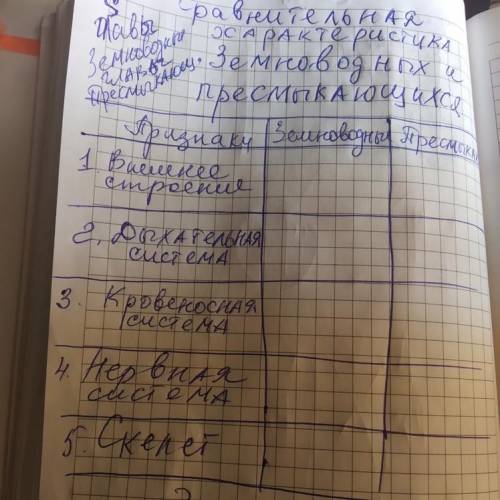 Сравнительная
характеристика
Земноводных и
пресмыкающихся
главы
Земноводные
главы
Пресмыкающ.
Признаки Земноводные Пресмык
1. Внешнее
строение
2. Дыхательная
система
3. Кровеносная
система
4. Нервная
система
5. Скелет